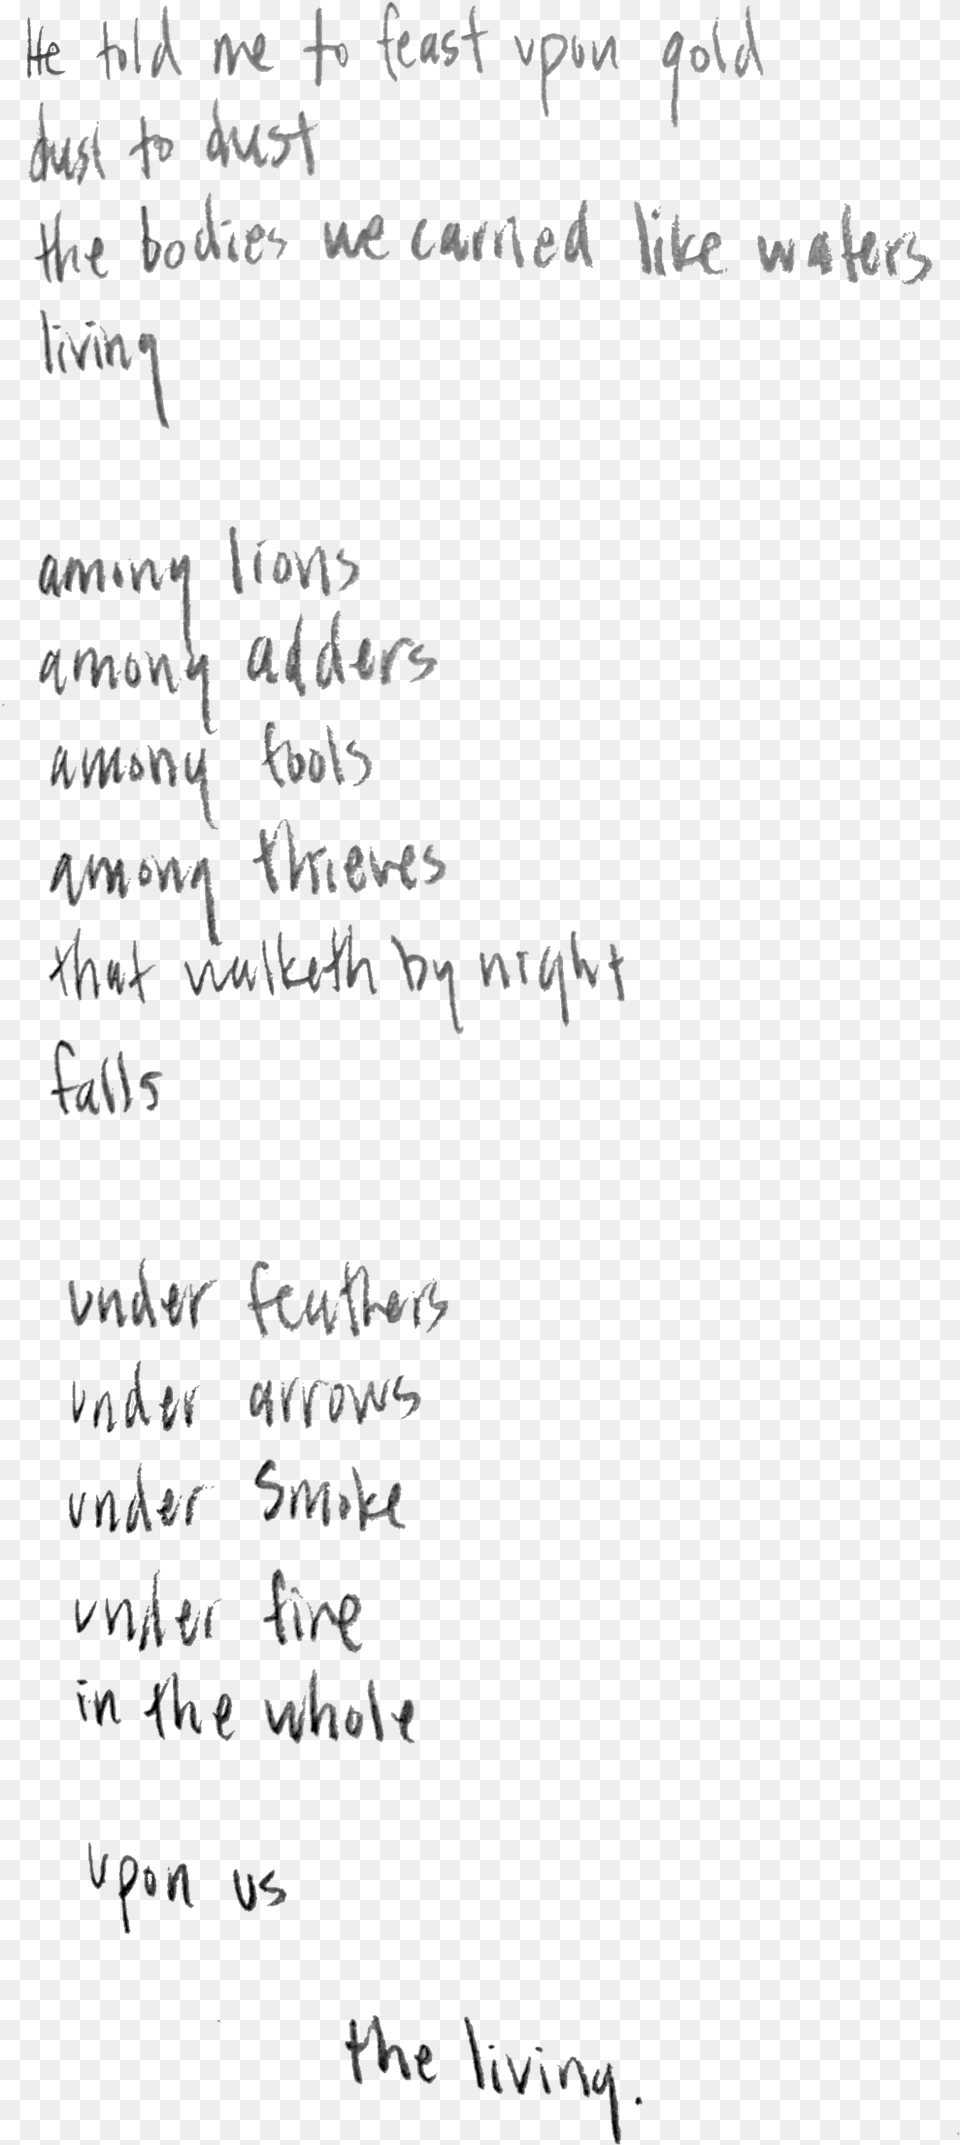 He told me to feast upon gold
dust to dust
the bodies we carried like waters
living
among lions
among adders
among fools
among thieves
that walketh by night
falls
under feathers
under arrows
under smoke
under fire
in the whole
upon us
the living.